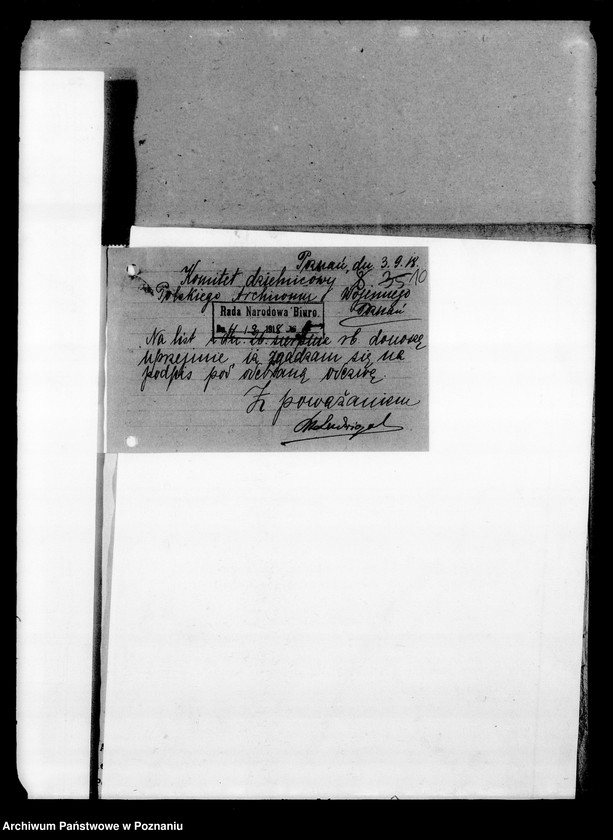 Poznań, du 3.9.18.
Komitet dzielnicowy
3510
Polskiego Archiwum Wojennego
Poznań
Rada Narodowa Biuro.
1918
Na list z dn. 26. sierpnia rb. donoszę
uprzejmie iż zgadzam się na
podpis pod odezwą
Z poważaniem
Archiwum Państwowe w Poznaniu